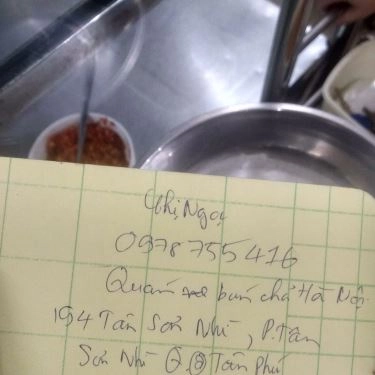 Chị Ngọc
0978755416
Quán bún chả Hà Nội
194 Tân Sơn Nhì, P. Tân
Sơn Nhì Q. Tân Phú